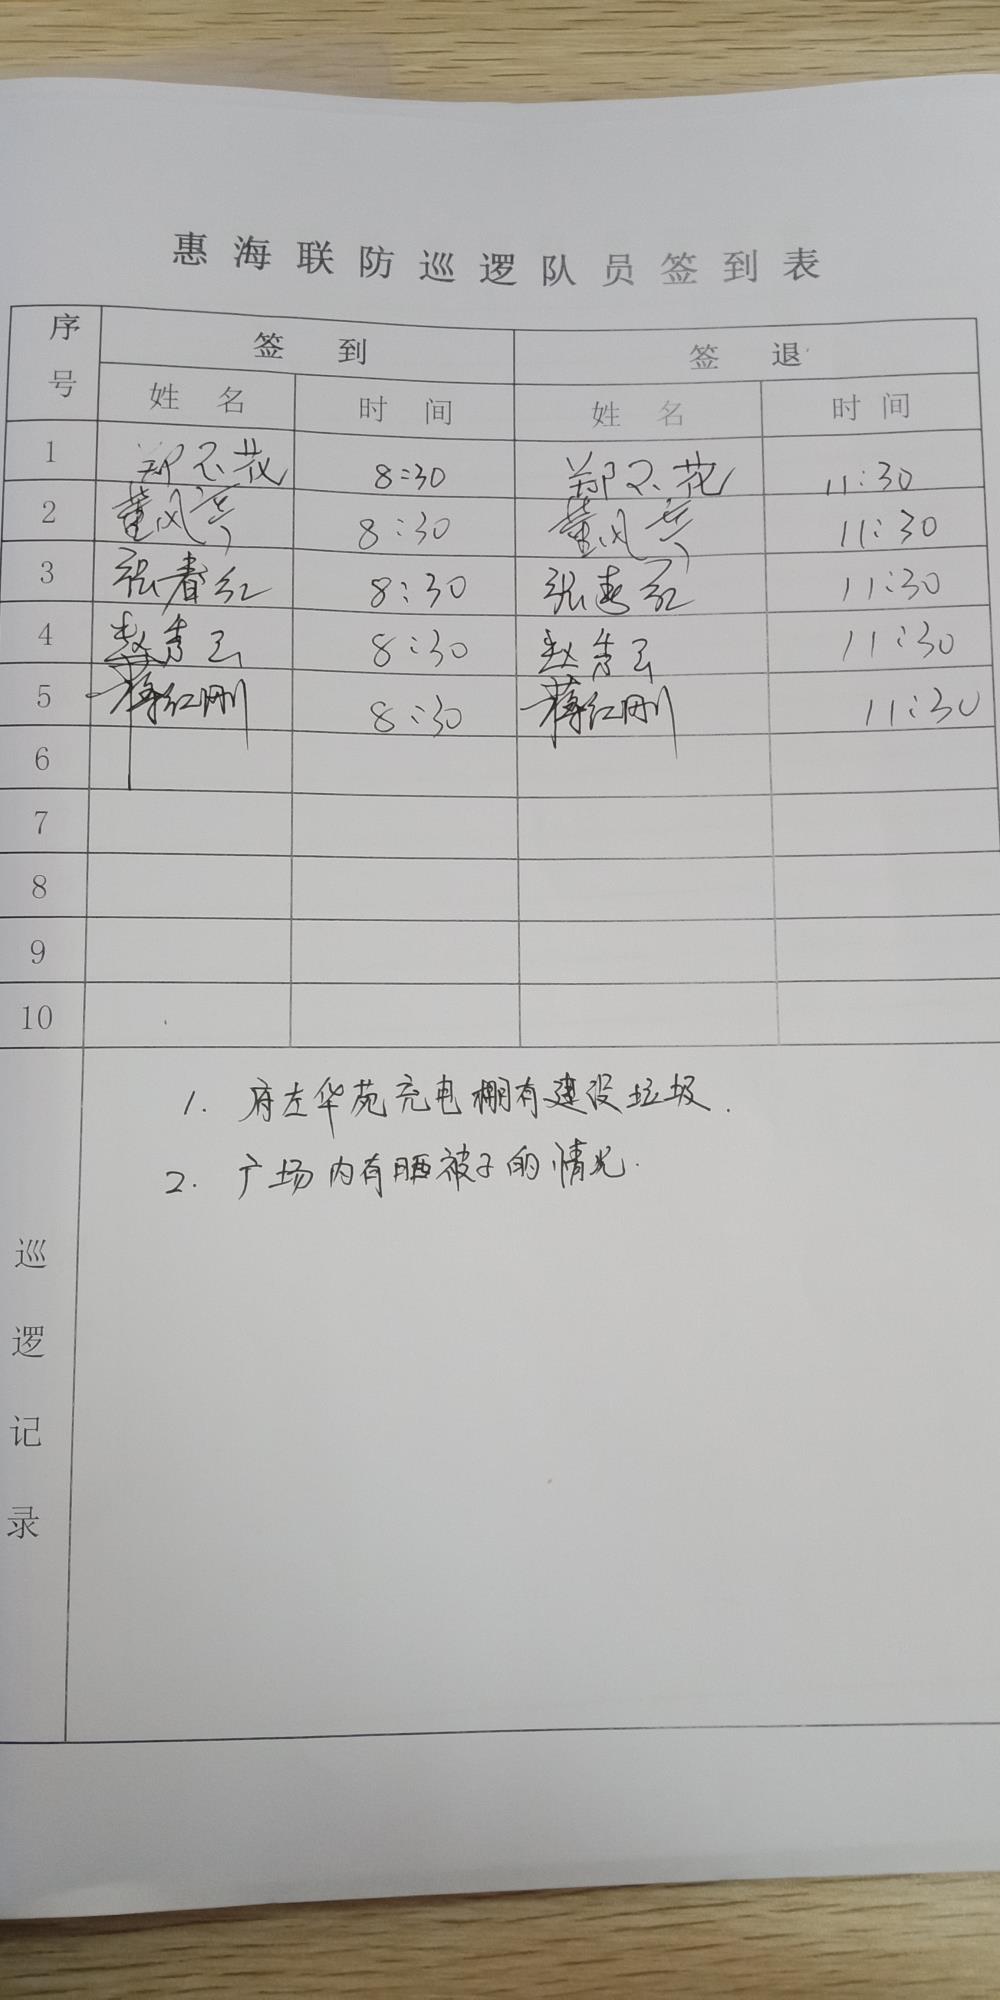 惠海联防巡逻队员签到表
序号 签到 签退
姓名 时间 姓名 时间
1 8:30 11:30
2 8:30 11:30
3 张春红 8:30 张春红 11:30
4 赵秀云 8:30 赵秀云 11:30
5 蒋红刚 8:30 蒋红刚 11:30
6
7
8
9
10
巡逻记录
1. 府左华苑充电棚有建设垃圾.
2. 广场内有晒被子的情况.